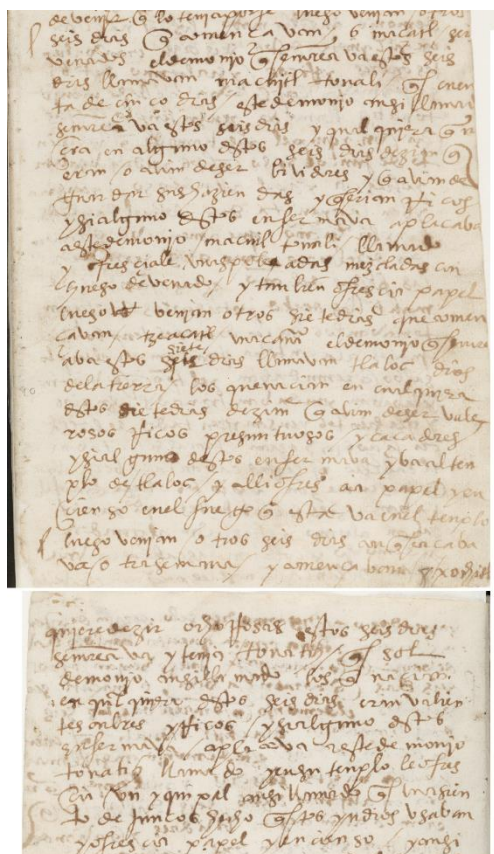 de venir q lo tenia por se luego venian otros
seis dias q comença van 6 macatl ser
venados el demonio q señorea va estos seis
dias llamavan macuil tonali
ta de cinco dias este demonio ansi llamado
señorea va estos seis dias y qual quiera q n
cia en alguno destos seis dias dezian q
eran o avian de ser bividores y q avian de
guardar sus hazien das y serian rricos
y si alguno destos enfermava aplacava
a este demonio macuil tonali llamado
y ofresciale unas mezcladas con
gueso de venado y tambien ofrescia papel
luego venian otros siete dias que comen
cavan el demonio q señore
ava estos siete dias llamavan tlaloc dios
de la tierra los que nacian en qualquiera
destos siete dias dezian q avian de ser vale
rosos rricos presuntuosos y caçadores
y si alguno destos enfer mava yba al ten
plo de tlaloc y alli ofres cia papel y en
cienso en el fuego q esta va en el templo
luego venian otros seis dias
va otra semana y començavan
quiere dezir estos seis dias
señorea va y tenia tonatiu q sol
demonio ansi lla mado los q nacian
en qual quiera destos seis dias eran valien
tes onbres y rricos y si alguno destos
enfermava aplacava a este demonio
tonatiu llamado y en su templo le ofres
cia un yquipal ansi llamado q asien
to de juncos hecho q estos yndios usavan
y ofrescia papel y encienso y ansi